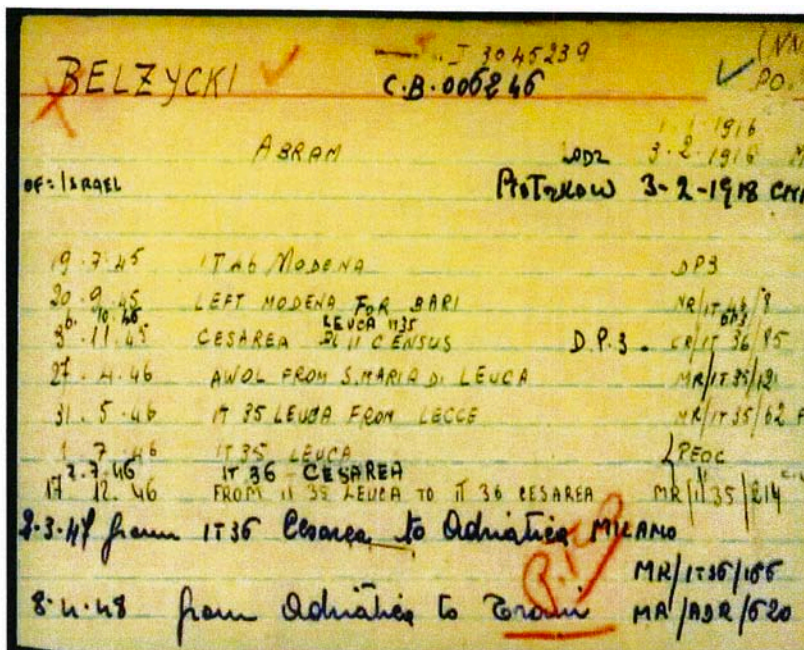 I 3045239 (NN
BELZYCKI C.B.006246 PO.
1.1.1916
ABRAM LODZ 3.2.1916 M
OF: ISRAEL PIOTRKOW 3-2-1918
19.7.45 IT 46 MODENA DP3
20.9.45 LEFT MODENA FOR BARI NR/IT 46/8
LEUCA IT35
3.11.45 CESAREA CENSUS D.P.3. CR/IT 36/85
27.4.46 AWOL FROM S.MARIA DI LEUCA MR/IT 35/121
31.5.46 IT 35 LEUCA FROM LECCE MR/IT35/62
1 7 46 IT 35 LEUCA PEOC
2.7.46 IT 36 CESAREA
17 12. 46 FROM IT 35 LEUCA TO IT 36 CESAREA MR/IT 35/214
2.3.47 from IT36 Cesarea to Adriatica MILANO
MR/IT36/166
8.4.48 from Adriatica to Trani MR/ADR/620